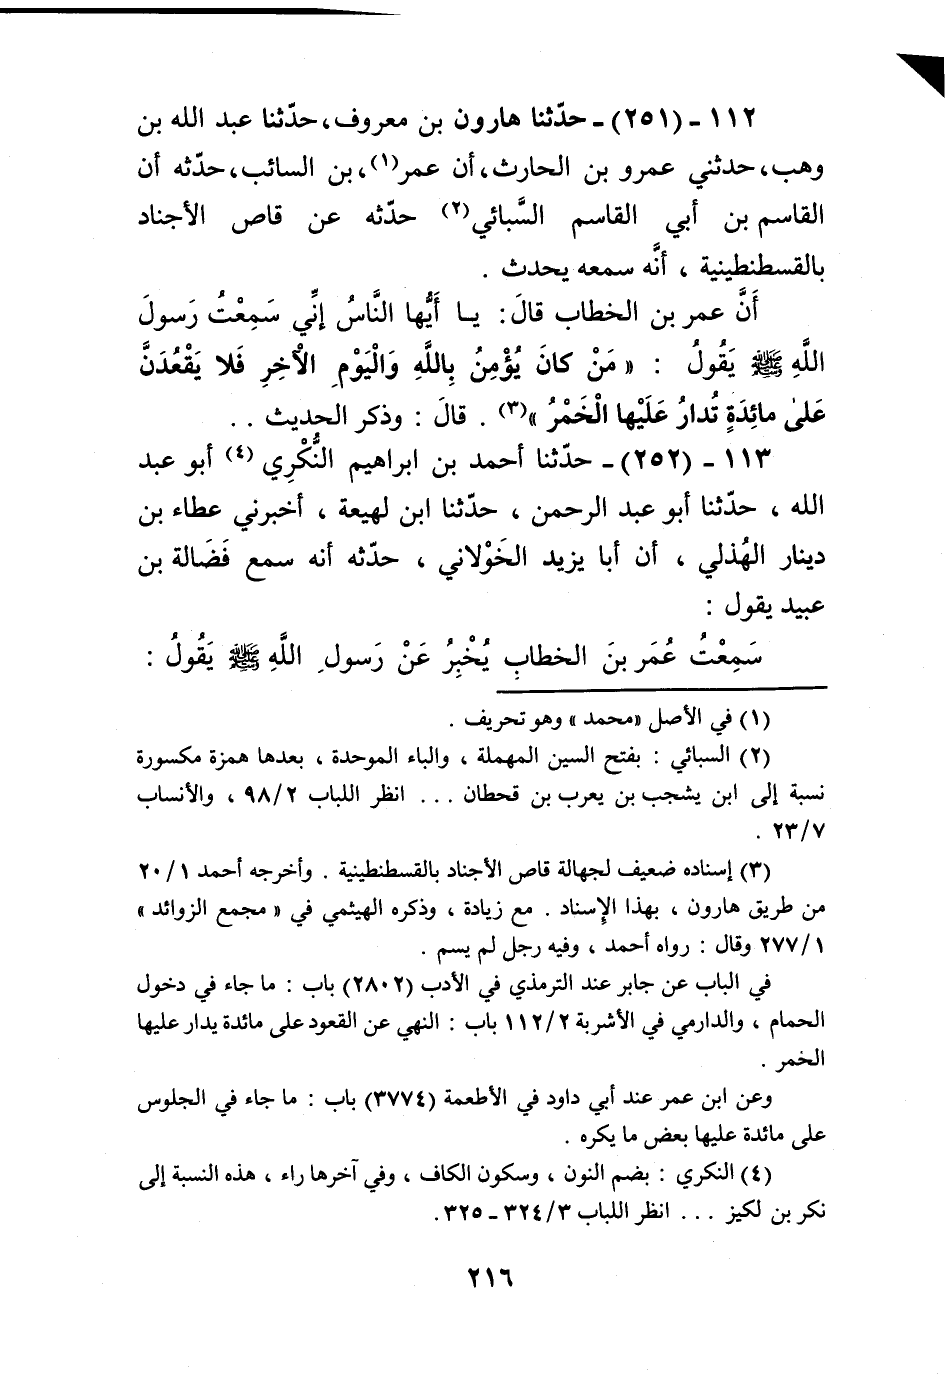 ١١٢ - (٢٥١) - حدّثنا هارون بن معروف، حدّثنا عبد الله بن
وهب، حدثني عمرو بن الحارث، أن عمر(١)، بن السائب، حدّثه أن
القاسم بن أبي القاسم السَّبائي(٢) حدّثه عن قاص الأجناد
بالقسطنطينية ، أنَّه سمعه يحدث .
أَنَّ عمر بن الخطاب قالَ: يا أَيُّها النَّاسُ إِنِّي سَمِعْتُ رَسولَ
اللَّهِ ﷺ يَقُولُ : « مَنْ كانَ يُؤْمِنُ بِاللَّهِ وَالْيَوْمِ الْآخِرِ فَلا يَقْعُدَنَّ
عَلىٰ مائِدَةٍ تُدارُ عَلَيْها الْخَمْرُ »(٣) . قالَ : وذكر الحديث . .
١١٣ - (٢٥٢) - حدّثنا أحمد بن ابراهيم النُّكْرِي (٤) أبو عبد
الله ، حدّثنا أبو عبد الرحمن ، حدّثنا ابن لهيعة ، أخبرني عطاء بن
دينار الهُذلي ، أن أبا يزيد الخَوْلاني ، حدّثه أنه سمع فَضَالة بن
عبيد يقول :
سَمِعْتُ عُمَر بنَ الخطابِ يُخْبِرُ عَنْ رَسولِ اللَّهِ ﷺ يَقُولُ :
(١) في الأصل «محمد» وهو تحريف .
(٢) السبائي : بفتح السين المهملة ، والباء الموحدة ، بعدها همزة مكسورة
نسبة إلى ابن يشجب بن يعرب بن قحطان ... انظر اللباب ٩٨/٢ ، والأنساب
٢٣/٧ .
(٣) إسناده ضعيف لجهالة قاص الأجناد بالقسطنطينية . وأخرجه أحمد ٢٠/١
من طريق هارون ، بهذا الإسناد . مع زيادة ، وذكره الهيثمي في « مجمع الزوائد »
٢٧٧/١ وقال : رواه أحمد ، وفيه رجل لم يسم .
في الباب عن جابر عند الترمذي في الأدب (٢٨٠٢) باب : ما جاء في دخول
الحمام ، والدارمي في الأشربة ١١٢/٢ باب : النهي عن القعود على مائدة يدار عليها
الخمر .
وعن ابن عمر عند أبي داود في الأطعمة (٣٧٧٤) باب : ما جاء في الجلوس
على مائدة عليها بعض ما يكره .
(٤) النكري : بضم النون ، وسكون الكاف ، وفي آخرها راء ، هذه النسبة إلى
نكر بن لكيز ... انظر اللباب ٣٢٤/٣ - ٣٢٥.
٢١٦